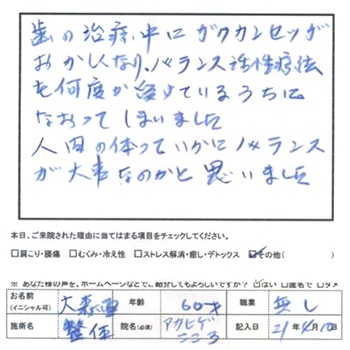 歯の治療中にガクカンセツが
おかしくなり、バランス活性療法
を何度か受けているうちに
なおってしまいました
人間の体っていかにバランス
が大事なのかと思いました
本日、ご来院された理由に当てはまる項目をチェックしてください。
□肩こり・腰痛 □むくみ・冷え性 □ストレス解消・癒し・デトックス ☑その他( )
※あなた様の声を、ホームページなどでご紹介してもよろしいですか? ☑はい □匿名で □ダメ
お名前 (イニシャル可) 年齢 60才 職業 無し
施術名 整体 院名(必須) アカヒゲ こころ 記入日 21年4月10日